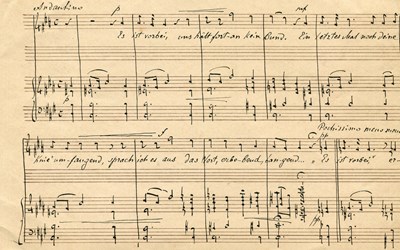 Andantino
p mf
Es ist vorbei, uns hält fortan kein Bund. Ein letztes Mal noch deine
p
f Pochissimo meno mosso
pp
Knie umfangend, sprach ich es aus das Wort, erbebend, bangend... „Es ist vorbei" er-
pp